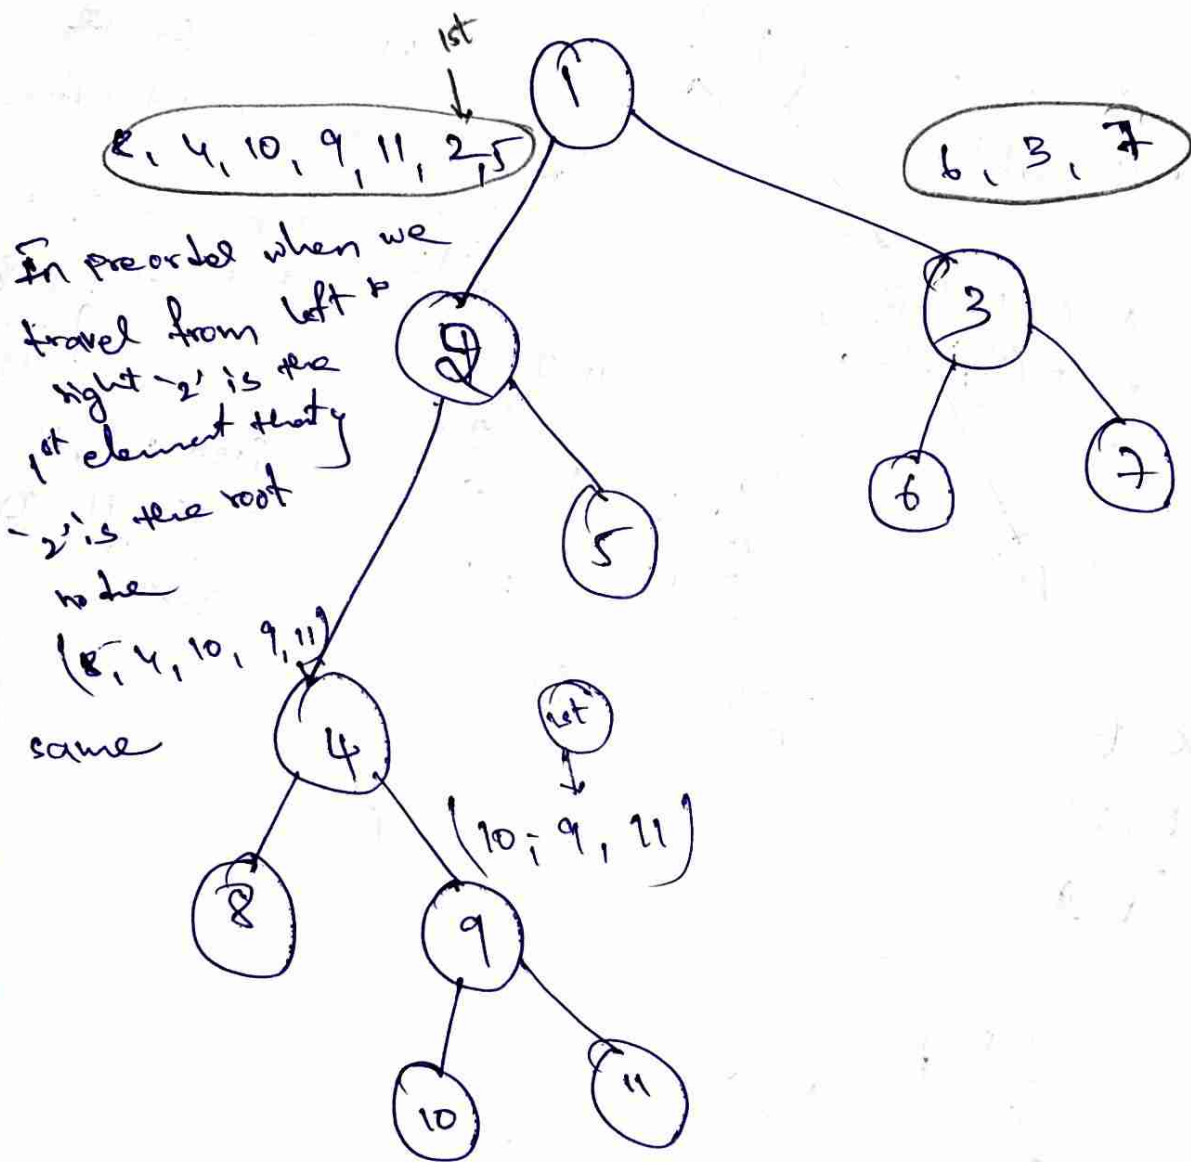 1st
1
8, 4, 10, 9, 11, 2, 5
6, 3, 7
In preorder when we
travel from left to
right '2' is the
1st element that
'2' is the root
node
(8, 4, 10, 9, 11)
same
2
3
5
6
7
4
1st
(10, 9, 11)
8
9
10
11